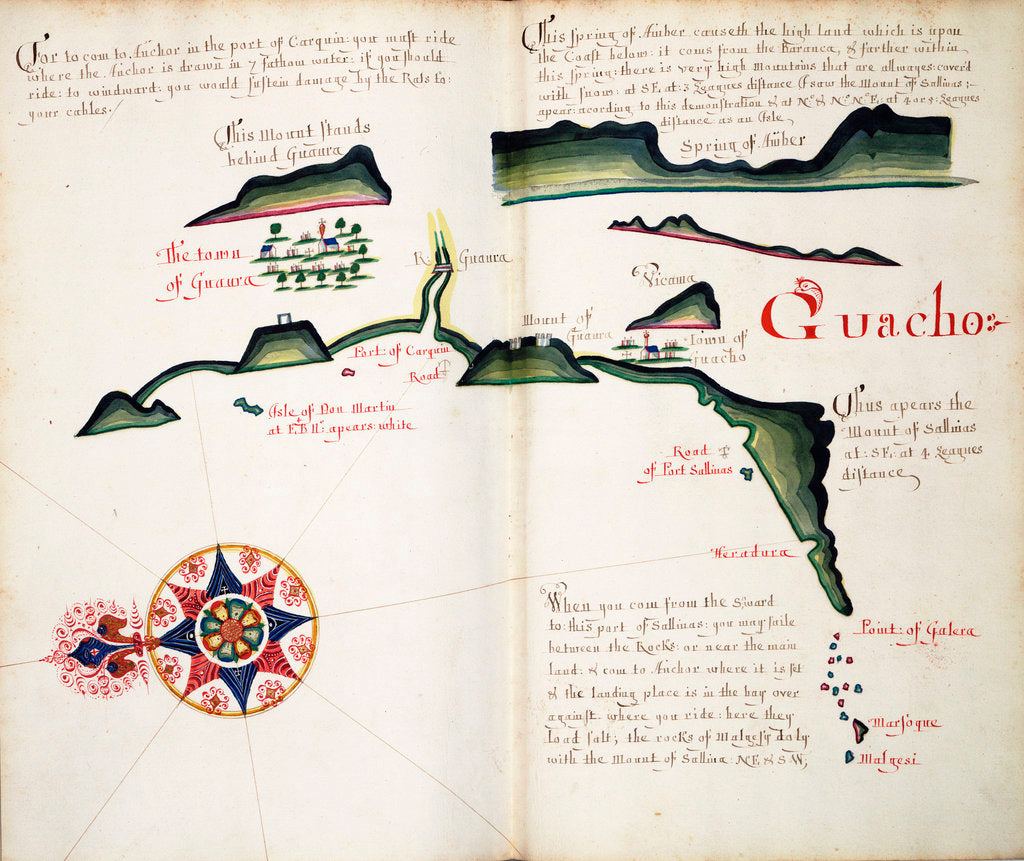 For to com to Anchor in the port of Carquin: you must ride
where the Anchor is drawn in 7 fathom water: if you should
ride: to windward: you would sustein damage by the Rats to:
your cables.
This spring of Amber causeth the high land which is upon
the Coast below: it coms from the Baranca, & farther within
this spring: there is very high Mountains that are allwayes: cover'd
with snow: at SE, at: 3 Leagues distance I saw the Mount of Sallinas:
apear: acording to this demonstration & at No: & No: No: E: at 4 or 5: Leagues
distance as an Isle
This Mount stands
behind Guaura
Spring of Amber
The town
of Guaura
R: Guaura
Vicama
Guacho:
Mount of
Guaura
Town of
Guacho
Port: of Carquin
Road
Isle of Don Martin
at E, B N: apears: white
Thus apears the
Mount of Sallinas
at: SE: at 4 Leagues
distance
Road
of Port Sallinas
Heradura
When you com from the Sward
to: this part of Sallinas: you may saile
between the Rocks: or near the main
land: & com to Anchor where it is set
& the landing place is in the bay over
against where you ride: here they
load salt; the rocks of Malgesy do ly
with the Mount of Sallina: NE, & SW;
Point: of Galera
Marsoque
Malgesi